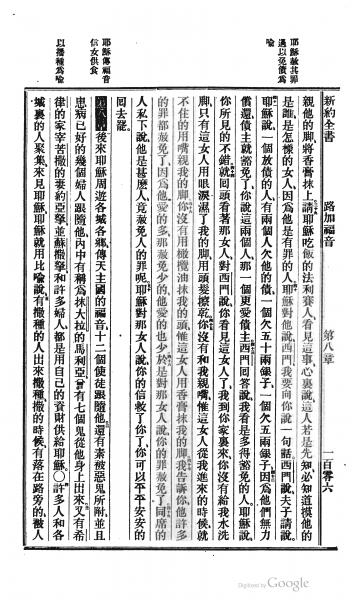 新約全書 路加福音 第八章 一百零六
耶穌赦其罪
過以免債爲
喻
耶穌傳福音
信女供食
以播種爲喻
親他的脚將香膏抹上請耶穌吃飯的法利賽人看見這事心裏說這人若是先知必知道摸他的
是誰是怎樣的女人因爲他是有罪的人耶穌對他說西門我要向你說一句話西門說夫子請說
耶穌說一個放債的人有兩個人欠他的債一個欠五十兩銀子一個欠五兩銀子因爲他們無力
償還債主就都豁免了你說這兩個人那一個更愛債主西門回答說我看是多得豁免的人耶穌說
你所見的不錯就回頭看着那女人對西門說你看見這女人了我到你家裏來你沒有給我水洗
脚只有這女人用眼淚濕了我的脚用頭髮擦乾你沒有和我親嘴惟這女人從我進來的時候就
不住的用嘴親我的脚你沒有用橄欖油抹我的頭惟這女人用香膏抹我的脚我告訴你他許多
的罪都赦免了因爲他愛的多那赦免少的他愛的也少於是對那女人說你的罪赦免了同席的
人私下說他是甚麼人竟赦免人的罪呢耶穌對那女人說你的信救了你了你可以平平安安的
回去罷
第八章後來耶穌周遊各城各鄉傳天主國的福音十二個使徒跟隨他還有素被惡鬼所附並且
患病已好的幾個婦人跟隨他內中有稱爲抹大拉的馬利亞曾有七個鬼從他身上出來又有希
律的家宰苦撒的妻約亞拏並蘇撒拏和許多婦人都是用自己的資財供給耶穌○許多人和各
城裏的人聚集來見耶穌耶穌就用比喻說有撒種的人出來撒種撒的時候有落在路旁的被人
Digitized by Google